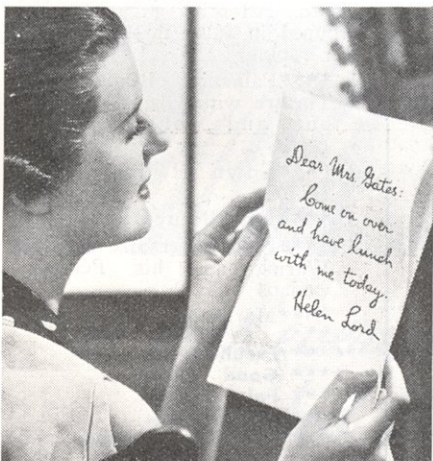 Dear Mrs. Gates:
Come on over
and have lunch
with me today.
Helen Lord